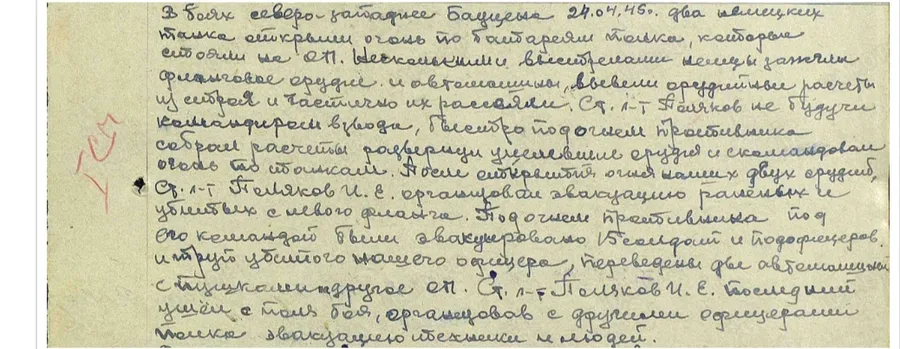 В боях северо-западнее Бауцена 24.04.45г. два немецких
танка открыли огонь по батареям полка, которые
стояли на ОП. Несколькими выстрелами немцы зажгли
фланговое орудие и автомашины, вывели орудийные расчеты
из строя и частично их рассеяли. Ст. л-т Поляков не будучи
командиром взвода, быстро под огнем противника
собрал расчеты развернул уцелевшие орудия и скомандовал
огонь по танкам. После открытия огня наших двух орудий,
Ст. л-т Поляков И. Е. организовал эвакуацию раненых и
убитых с левого фланга. Под огнем противника под
его командой были эвакуировано 15 солдат и подофицеров
и труп убитого нашего офицера, переведены две автомашины
с пушками на другое ОП. Ст. л-т Поляков И. Е. последний
ушел с поля боя, организовав с другими офицерами
полка эвакуацию техники и людей.